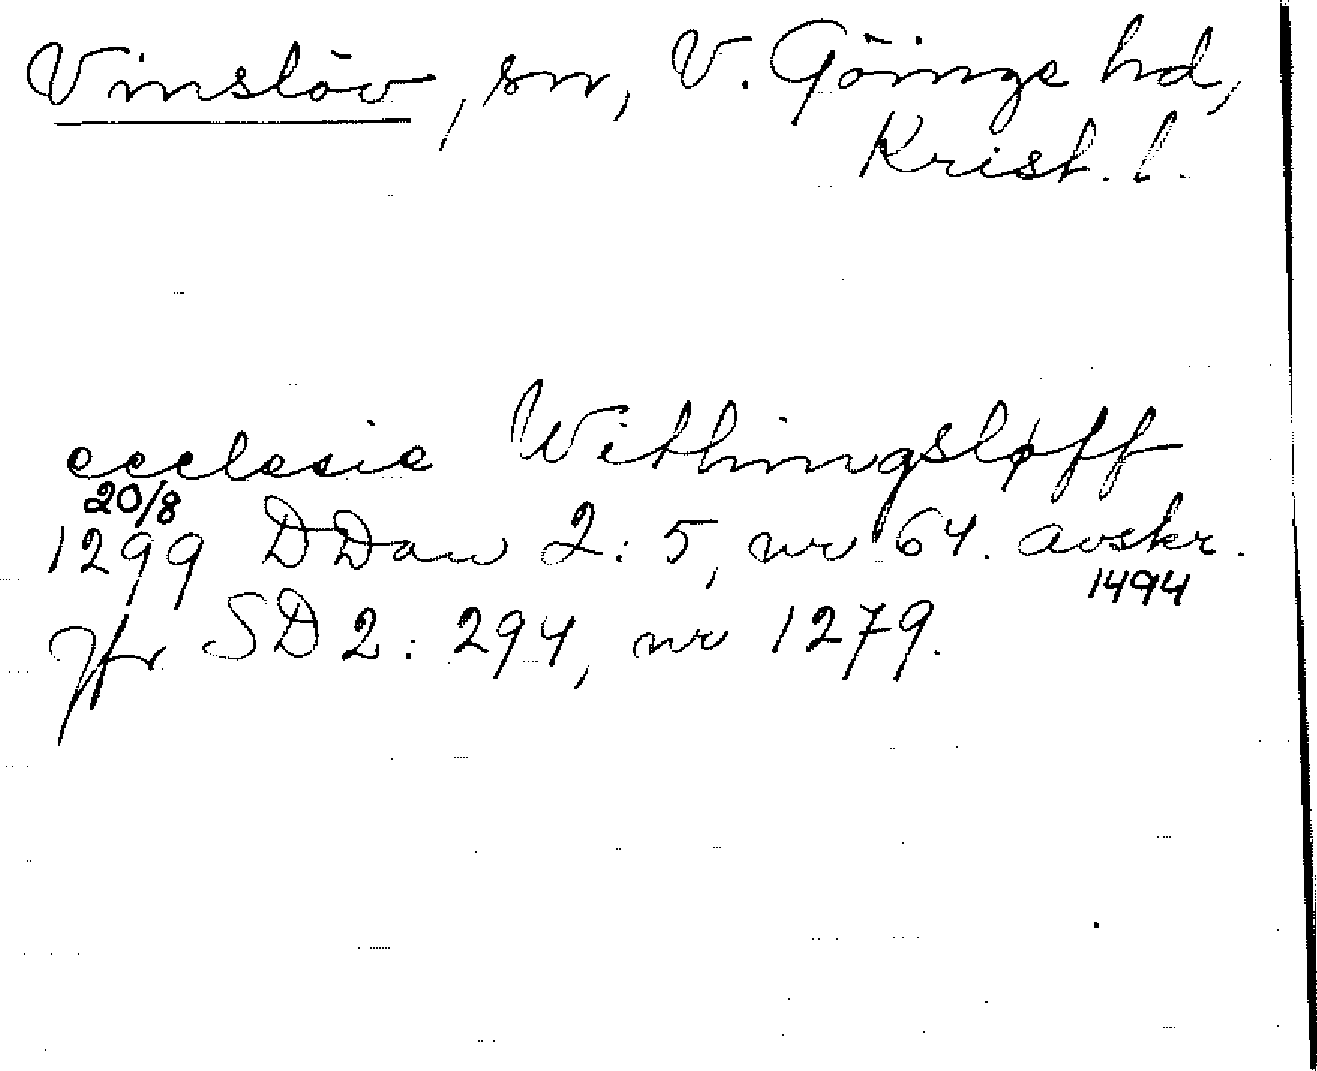 Vinslöv, sn, V. Göinge hd,
Krist. l.
ecclesie Withingsløff
20/8
1299 DDan 2:5, nr 64. avskr.
1494
Jfr SD 2: 294, nr 1279.